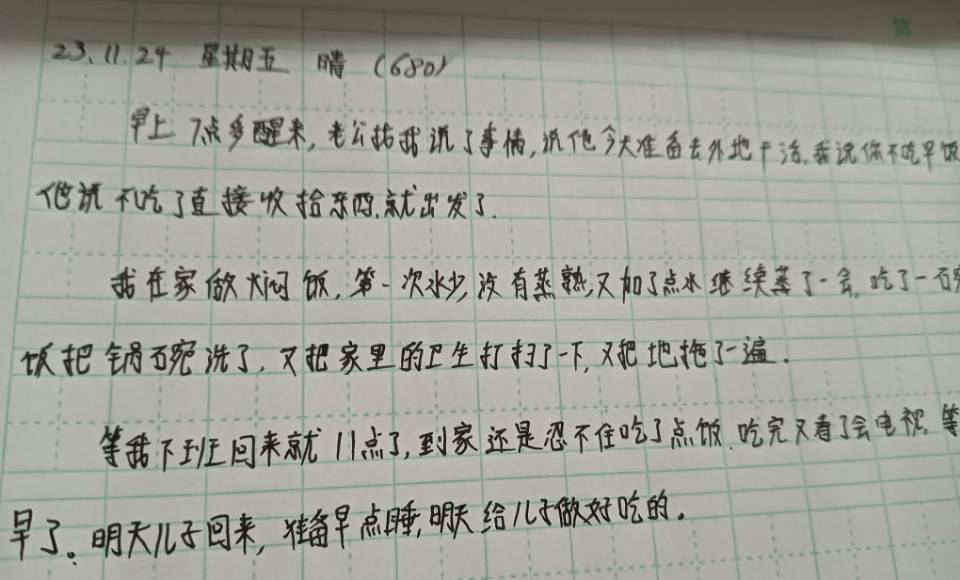 23.11.24 星期五 晴 (680)
早上7点多醒来,老公拈我说了事情,说他今天准备去外地干活.我说你不吃早饭
他说不吃了直接收拾东西,就出发了.
我在家做焖饭,第一次水少,没有蒸熟,又加了点水继续蒸了一会,吃了一碗
饭把锅碗洗了,又把家里的卫生打扫了一下,又把地拖了一遍.
等我下班回来就11点了,到家还是忍不住吃了点饭.吃完又看了会电视,等
早了。明天儿子回来,准备早点睡,明天给儿子做好吃的。